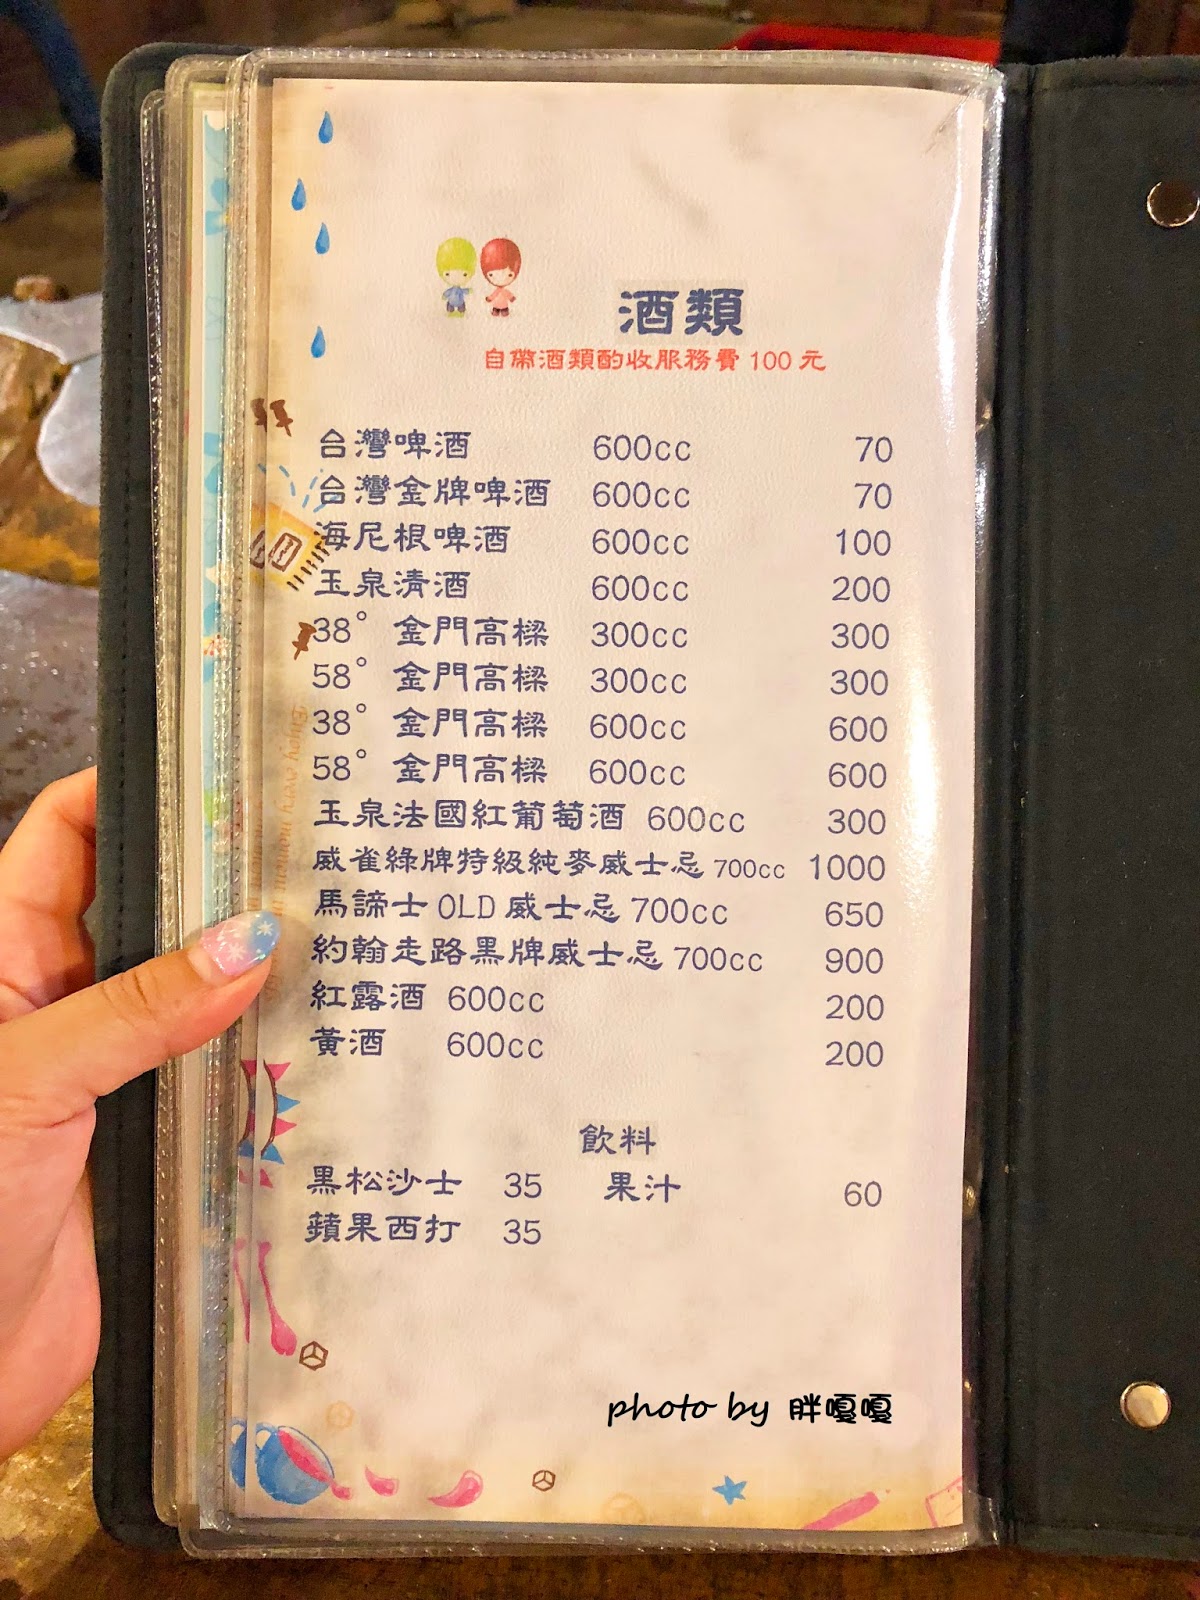 酒類
自帶酒類酌收服務費 100 元
台灣啤酒 600cc 70
台灣金牌啤酒 600cc 70
海尼根啤酒 600cc 100
玉泉清酒 600cc 200
38° 金門高樑 300cc 300
58° 金門高樑 300cc 300
38° 金門高樑 600cc 600
58° 金門高樑 600cc 600
玉泉法國紅葡萄酒 600cc 300
威雀綠牌特級純麥威士忌 700cc 1000
馬諦士 OLD 威士忌 700cc 650
約翰走路黑牌威士忌 700cc 900
紅露酒 600cc 200
黃酒 600cc 200
飲料
黑松沙士 35 果汁 60
蘋果西打 35
photo by 胖嘎嘎